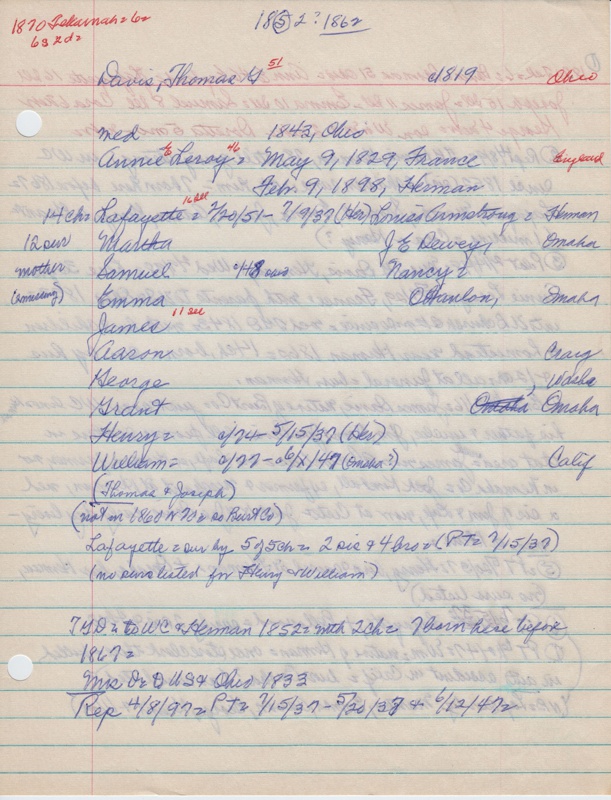 1870 Tekamah = 62
63 2d =
1852? 1862
Davis, Thomas G 51 c1819 Ohio
med 1843, Ohio
Annie E Leroy = 46 May 9, 1829, France England
Feb. 9, 1898, Herman
14 ch = Lafayette = 16 sec 2/20/51 - 7/9/37 (Her) Louise Armstrong = Herman
12 sur Martha J E Dewey, Omaha
mother Samuel c/48 Nancy =
Emma O'Hanlon, Omaha
James 11 sec
Aaron Craig
George , Idaho
Grant Omaha Omaha
Henry = c/74 - 5/15/37 (Her)
William = c/77 - c6/x/47 (Omaha?) Calif
(Thomas & Joseph)
(not in 1860 N 70 = so Burt Co)
Lafayette = sur by 5 of 5 ch = 2 sis & 4 bro = (PT = 7/15/37)
(no surs listed for Henry & William)
TGD = to WC & Herman 1852 = with 2 ch = 7 born here before
1867 =
Mrs D = D US & Ohio 1833
Rep 4/8/97 = PT = 7/15/37 - 5/20/37 & 6/12/47 =